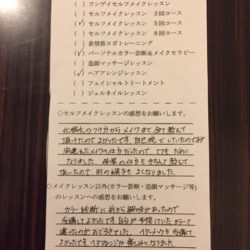 ( ) ワンデイセルフメイクレッスン
( ) セルフメイクレッスン 3回コース
(✓) セルフメイクレッスン 5回コース
( ) セルフメイクレッスン 8回コース
( ) 表情筋ヨガトレーニング
(✓) パーソナルカラー診断&メイクセラピー
( ) 造顔マッサージレッスン
(✓) ヘアアレンジレッスン
( ) フェイシャルトリートメント
( ) ジェルネイルレッスン
◇セルフメイクレッスンの感想をお願いします。
化粧水のつけ方からメイクまで全て教えて
頂けたのでよかったです。自己流でしていたので
間違えたメイクの仕方だったので、とてもために
なりました。保湿の仕方もきちんと教えて
頂いたので、肌の調子もよくなりました。
◇メイクレッスン以外(カラー診断・造顔マッサージ等)
のレッスンへの感想をお願いします。
カラー診断に前から興味があったので
受講してよかったです。自分が予想していたカラーと
違ったのがおどろきでした。ヘアアレンジも受講して
よかったです。ヘアアレンジが楽しみになりました。